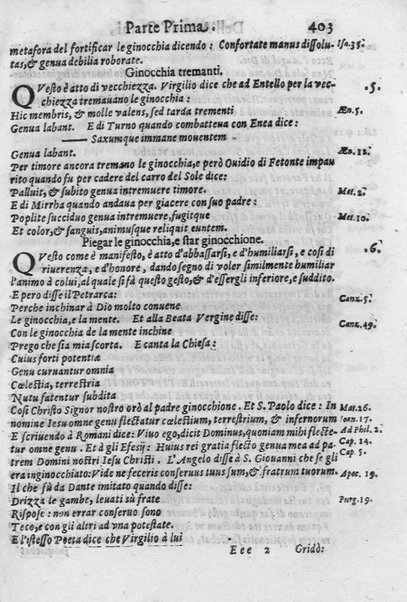 Parte Prima. 403
metafora del fortificar le ginocchia dicendo: Confortate manus dissolu- Isa.35.
tas, & genua debilia roborate.
Ginocchia tremanti.
QVesto è atto di vecchiezza. Virgilio dice che ad Entello per la vec- .5.
chiezza tremauano le ginocchia:
Hic membris, & mole valens, sed tarda trementi Æn.5.
Genua labant. E di Turno quando combatteua con Enea dice:
Saxumque immane mouentem
Genua labant. Æn.12.
Per timore ancora tremano le ginocchia, e però Ouidio di Fetonte impau
rito quando fu per cadere del carro del Sole dice:
Palluit, & subito genua intremuere timore. Met.2.
E di Mirrha quando andaua per giacere con suo padre:
Poplite succiduo genua intremuere, fugitque Met.10.
Et color, & sanguis, animusque reliquit euntem.
Piegar le ginocchia, e star ginocchione.
QVesto come è manifesto, è atto d'abbassarsi, e d'humiliarsi, e cosi di .6.
riuerenza, e d'honore, dando segno di voler similmente humiliar
l'animo à colui, al quale si fà questo gesto, & d'essergli inferiore, e suddito.
E però disse il Petrarca:
Perche inchinar à Dio molto conuene Canz.5.
Le ginocchia, e la mente. Et alla Beata Vergine disse:
Con le ginocchia de la mente inchine Canz.49.
Prego che sia mia scorta. E canta la Chiesa:
Cuius forti potentiæ
Genu curuantur omnia
Cœlestia, terrestria
Nutu fatentur subdita
Cosi Christo Signor nostro orò al padre ginocchione. Et S. Paolo dice: In Mat.26.
nomine Iesu omne genu flectatur cœlestium, terrestrium, & infernorum Ioan.17.
E scriuendo à Romani dice: Viuo ego, dicit Dominus, quoniam mihi flecte- Ad Phil.2.
tur omne genu. Et à gli Efesij: Huius rei gratia flecto genua mea ad pa- Cap.14.
trem Domini nostri Iesu Christi. L'Angelo disse à S. Giouanni che se gli Cap.5.
era inginocchiato: Vide ne feceris conseruus tuus sum, & fratrum tuorum. Apoc.19.
Il che fù da Dante imitato quando disse:
Drizza le gambe, leuati sù frate Purg.19.
Rispose: non errar conseruo sono
Teco, e con gli altri ad vna potestate.
E l'istesso Poeta dice che Virgilio à lui
Eee 2 Gridò: